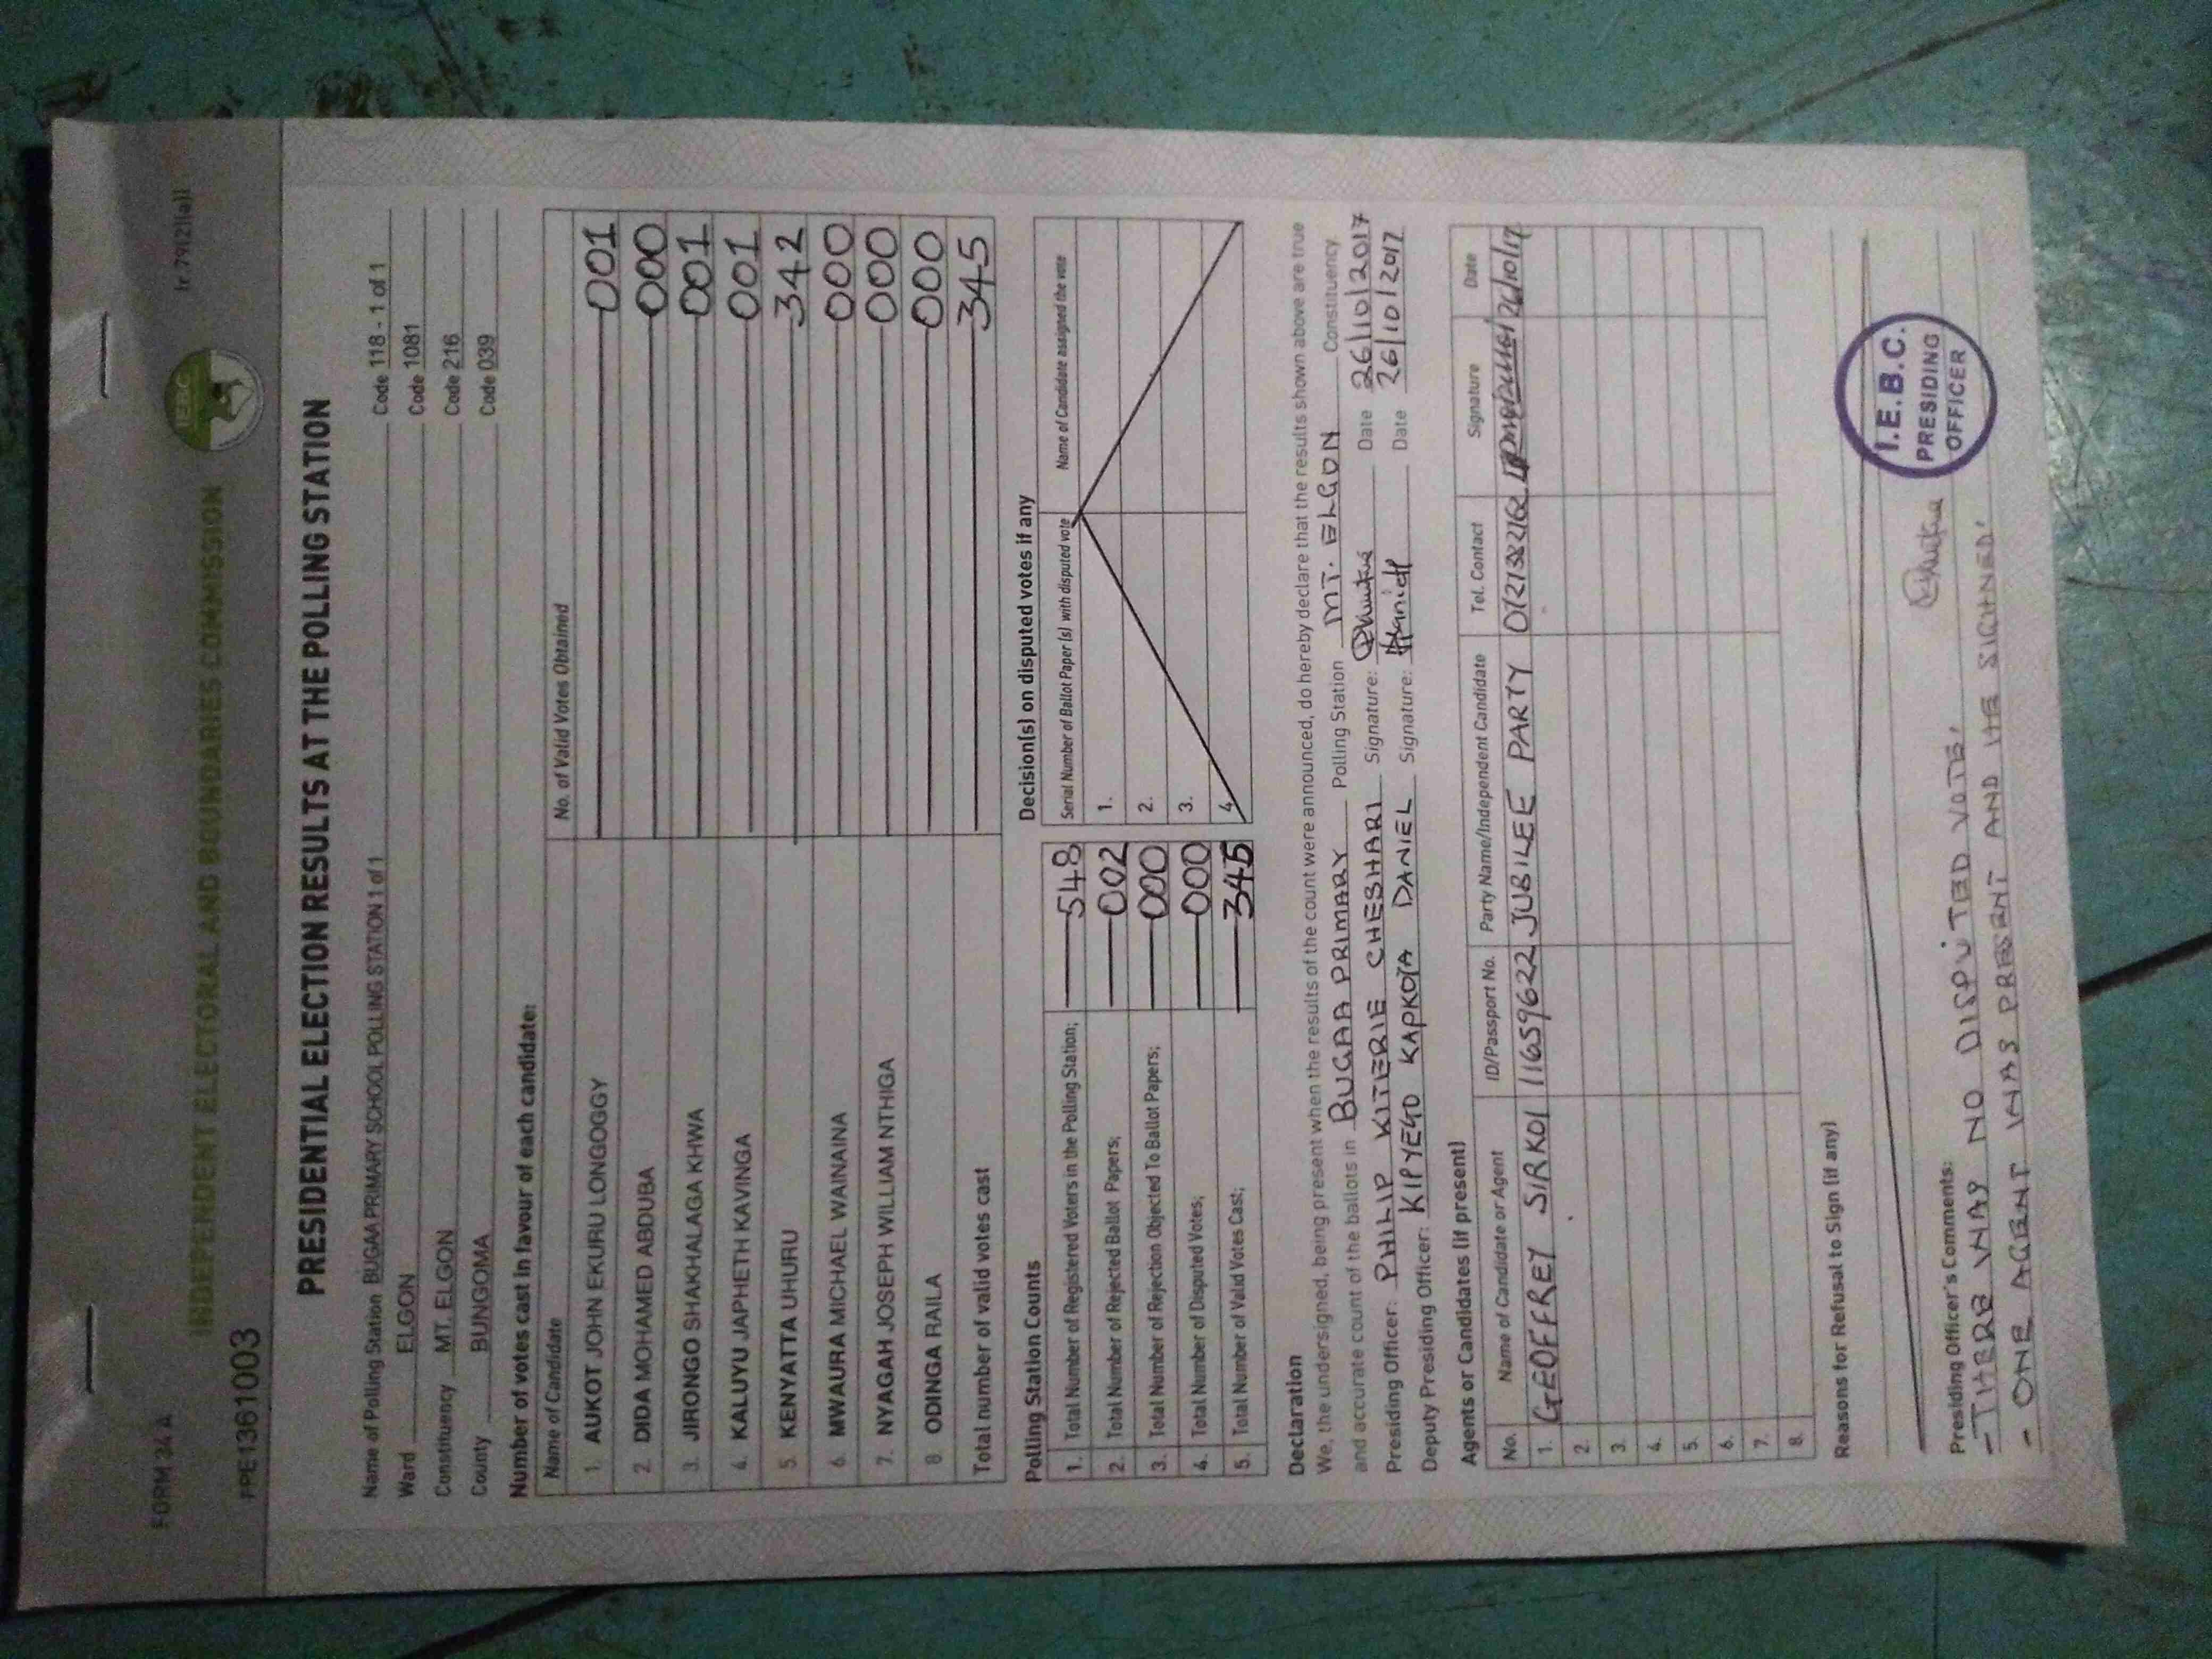 FORM 34 A
Ir 79(2)(a)
INDEPENDENT ELECTORAL AND BOUNDARIES COMMISSION
IEBC
PPE1361003
PRESIDENTIAL ELECTION RESULTS AT THE POLLING STATION
Name of Polling Station BUGAA PRIMARY SCHOOL POLLING STATION 1 of 1 Code 118 - 1 of 1
Ward ELGON Code 1081
Constituency MT. ELGON Code 216
County BUNGOMA Code 039
Number of votes cast in favour of each candidate:
Name of Candidate No. of Valid Votes Obtained
1. AUKOT JOHN EKURU LONGOGGY 001
2. DIDA MOHAMED ABDUBA 000
3. JIRONGO SHAKHALAGA KHWA 001
4. KALUYU JAPHETH KAVINGA 001
5. KENYATTA UHURU 342
6. MWAURA MICHAEL WAINAINA 000
7. NYAGAH JOSEPH WILLIAM NTHIGA 000
8 ODINGA RAILA 000
Total number of valid votes cast 345
Polling Station Counts
1. Total Number of Registered Voters in the Polling Station; 548
2. Total Number of Rejected Ballot Papers; 002
3. Total Number of Rejection Objected To Ballot Papers; 000
4. Total Number of Disputed Votes; 000
5. Total Number of Valid Votes Cast; 345
Decision(s) on disputed votes if any
Serial Number of Ballot Paper (s) with disputed vote Name of Candidate assigned the vote
1.
2.
3.
4.
Declaration
We, the undersigned, being present when the results of the count were announced, do hereby declare that the results shown above are true
and accurate count of the ballots in BUGAA PRIMARY Polling Station MT. ELGON Constituency.
Presiding Officer: PHILIP KITIERIE CHESHARI Signature: Date 26/10/2017
Deputy Presiding Officer: KIPYEGO KAPKOTA DANIEL Signature: Date 26/10/2017
Agents or Candidates (if present)
No. Name of Candidate or Agent ID/Passport No. Party Name/Independent Candidate Tel. Contact Signature Date
1. GEOFFREY SIRKOI 11659622 JUBILEE PARTY 26/10/17
2.
3.
4.
5.
6.
7.
8.
Reasons for Refusal to Sign (if any)
Presiding Officer's Comments:
- THERE WAS NO DISPUTED VOTE.
- ONE AGENT WAS PRESENT AND HE SIGNED.
I.E.B.C.
PRESIDING
OFFICER